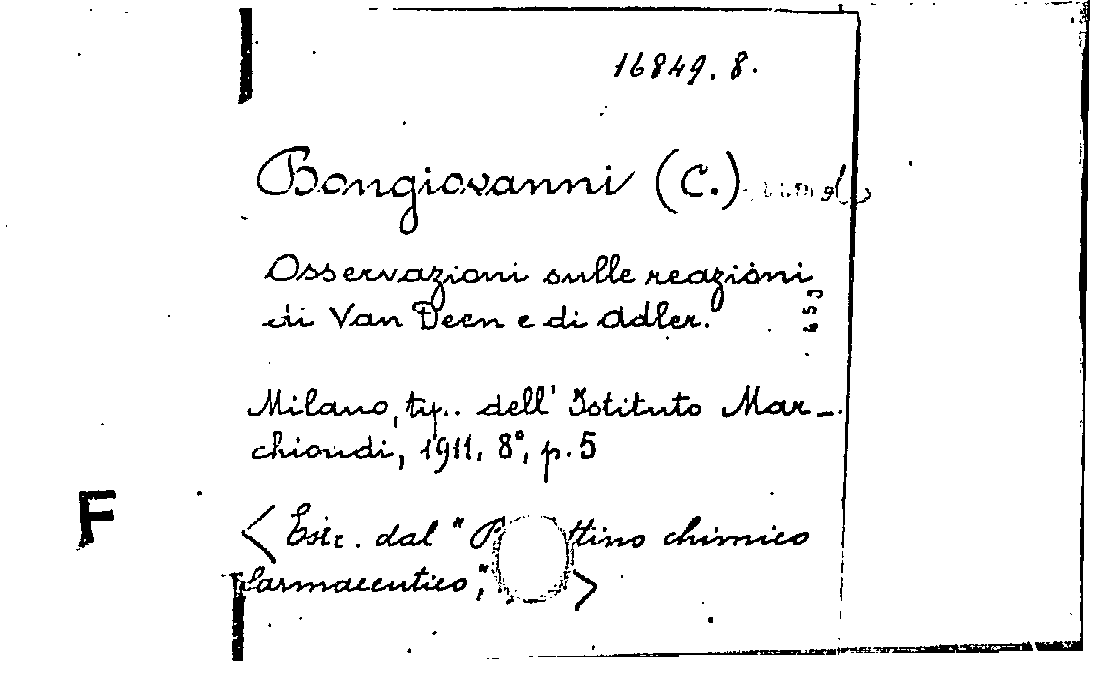 16849. 8.
Bongiovanni (C.)
Osservazioni sulle reazioni
di Van Deen e di Adler.
653
Milano, tip. dell' Istituto Mar-
chiondi, 1911. 8°, p. 5
F
< Estr. dal " chimico
farmaceutico, " >